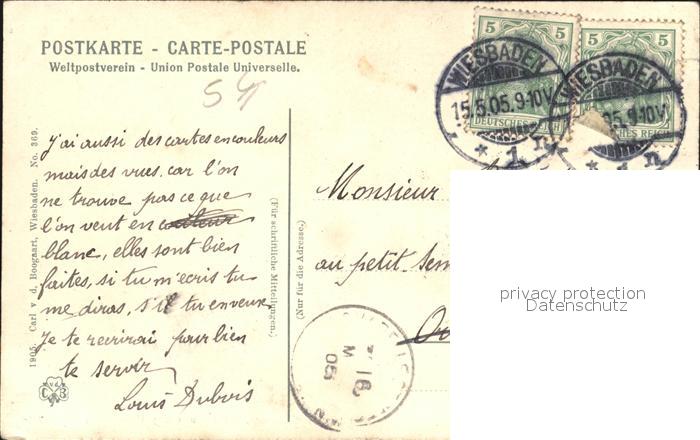 POSTKARTE - CARTE-POSTALE
Weltpostverein - Union Postale Universelle.
5
5
WIESBADEN
WIESBADEN
15.5.05.9-10V.
05.9-10V
DEUTSCHES REICH
CHES REICH
* 1
* 1 n
j'ai aussi des cartes en couleurs
mais des vues, car l'on
ne trouve pas ce que
l'on veut en couleur
blanc, elles sont bien
faites, si tu m'ecris tu
me diras, s'il tu en veux
Je te recrirai pour bien
te servir
Louis Dubois
1905. Carl v. d. Boogaart, Wiesbaden. No. 369.
(Für schriftliche Mitteilungen.)
(Nur für die Adresse.)
Monsieur
au petit
16
M
05
privacy protection
Datenschutz